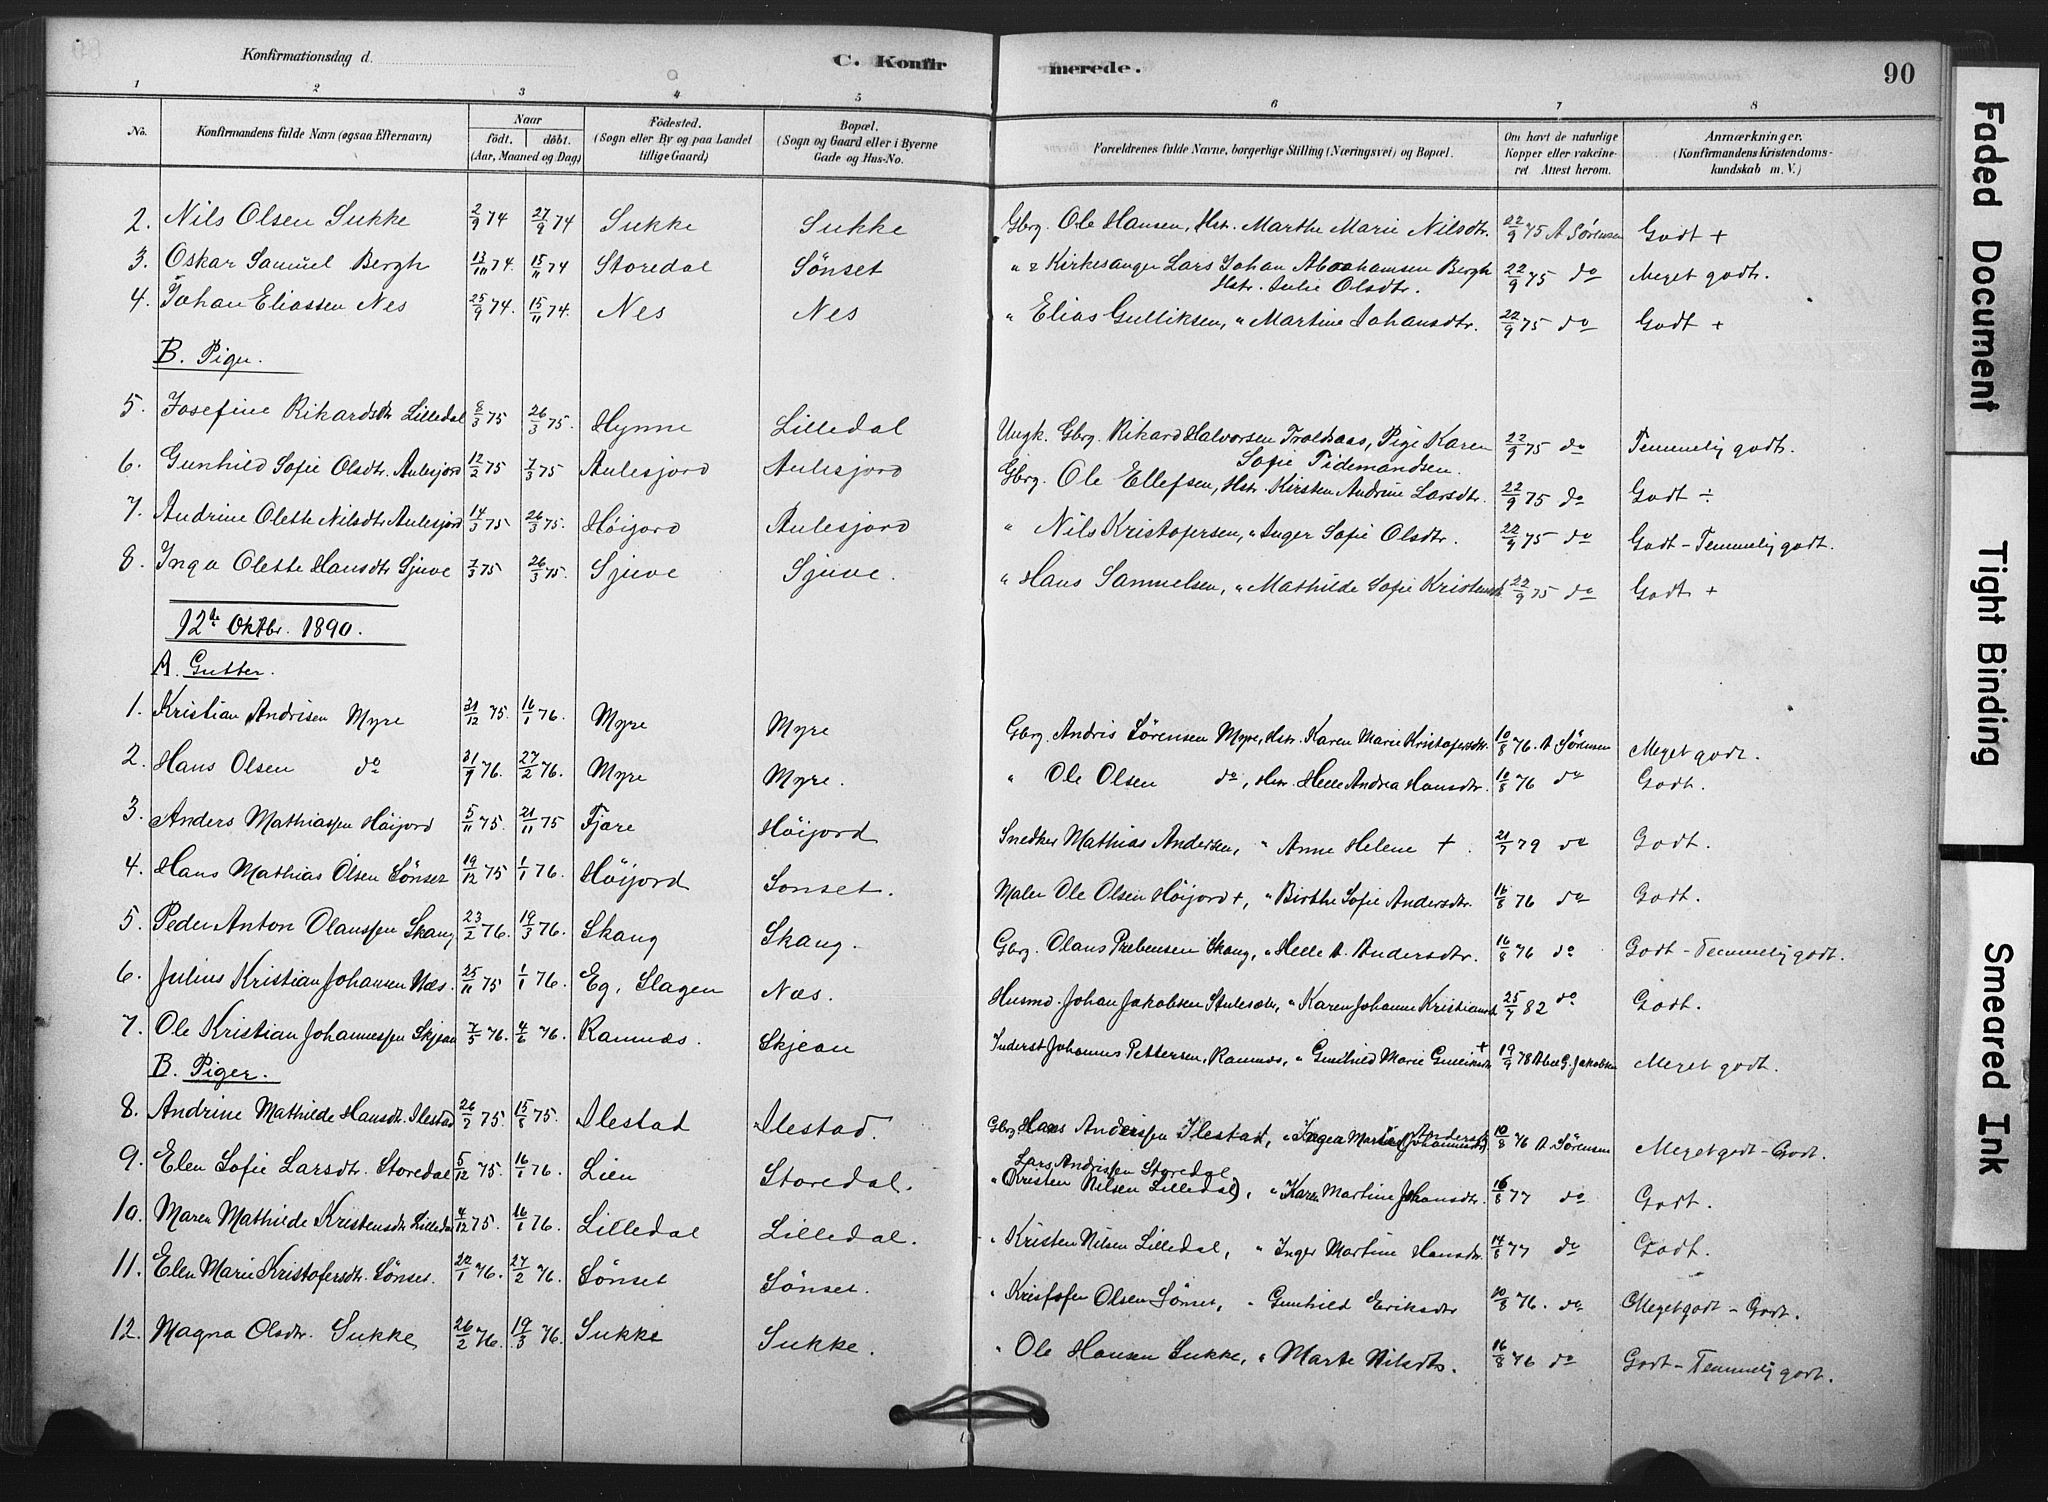 Konfirmationsdag d.
C. Konfirmerede.
90
1 2 3 4 5 6 7 8
No.
Konfirmandens fulde Navn (ogsaa Efternavn)
Naar
født. døbt.
(Aar, Maaned og Dag)
Fødested.
(Sogn eller By og paa Landet
tillige Gaard)
Bopæl.
(Sogn og Gaard eller i Byerne
Gade og Hus-No.
Forældrenes fulde Navne, borgerlige Stilling (Næringsvei) og Bopæl.
Om havt de naturlige
Kopper eller vakcine-
ret Attest herom.
Anmærkninger.
(Konfirmandens Kristendoms-
kundskab m. V.)
2. Nils Olsen Sukke 2/9 74 27/9 74 Sukke Sukke Gbrg. Ole Hansen, Hstr. Marthe Marie Nilsdtr. 22/9 75 A Sørensen Godt +
3. Oskar Samuel Bergh 13/10 74. 15/11 74 Storedal Sönset " Kirkesanger Lars Johan Abrahamsen Bergh 22/9 75 do Meget godt.
Hstr. Julie Olsdtr.
4. Johan Eliassen Nes 25/9 74. 15/11 74. Nes Nes " Elias Gulliksen, " Martine Johansdtr. 22/9 75 do Godt +
B. Piger.
5. Josefine Rikardsdtr Lilledal 8/3 75 26/3 75. Hynne Lilledal Ungk. Gbrg. Rikard Halvorsen Troldsaas, Pige Karen 22/9 75 do Temmelig godt.
Sofie Tidemandsen.
6. Gunhild Sofie Olsdtr. Aulesjord 12/2 75 7/3 75. Aulesjord Aulesjord Gbrg. Ole Ellefsen, Hstr. Kirsten Andrine Larsdtr. 22/9 75 do Godt ÷
7. Andrine Olette Nilsdtr Aulesjord 14/3 75 26/3 75. Höijord Aulesjord " Nils Kristofersen, " Inger Sofie Olsdtr. 22/9 75 do Godt - Temmelig godt.
8. Inga Olette Hansdtr Sjuve 7/3 75 26/3 75. Sjuve Sjuve. " Hans Samuelsen, " Mathilde Sofie Kristensdtr 22/9 75 do Godt +
12te Oktbr. 1890.
A. Gutter.
1. Kristian Andrisen Myre 21/12 75. 16/1 76. Myre Myre Gbrg. Andris Sörensen Myre, Hstr. Karen Marie Kristofersdtr. 10/8 76. A Sörensen Meget godt.
2. Hans Olsen do 76. 27/2 76. Myre Myre. " Ole Olsen do, Hstr. Helle Andrea Hansdtr. 10/8 76 do Godt.
3. Anders Mathiassen Höijord 5/11 75. 21/11 75 Fjære Höijord Snedker Mathias Andersen, " Anne Helene +. 79 do Godt.
4. Hans Mathias Olsen Sönset 19/12 75 1/1 76. Höijord Sonset. Maler Ole Olsen Höijord +, " Birthe Sofie Andersdtr. 16/8 76 do Godt.
5. Peder Anton Olaussen Skaug 23/2 76. 19/3 76. Skaug Skaug. Gbrg. Olaus Prebensen Skaug, " Helle A. Andersdtr. 16/8 76 do Godt - Temmelig godt.
6. Julius Kristian Johansen Næs. 25/11 75 1/1 76. Eg, Slagen Næs. Husmd. Johan Jakobsen " Karen Johanne Kristiansdtr 25/7 82 do Godt.
7. Ole Kristian Johannessen Skjean 7/5 76. 4/6 76. Ramnæs. Skjean Inderst Johannes Pettersen, Ramnæs, " Gunhild Marie + 19/9 78 G. Jakobsen Meget godt.
B. Piger.
8. Andrine Mathilde Hansdtr. Ilestad 75 15/8 75. Ilestad Ilestad. Gbrg Hans Anderssen Ilestad, " Ingea Martine 10/8 76 A. Sörensen Meget godt - Godt.
9. Elen Sofie Larsdtr. Storedal 5/12 75. 16/1 76. Lien Storedal. Lars Andrissen Storedal
" (Kristen Nilsen Lilledal), " Karen Martine Johansdtr. 16/8 77 do Godt.
10. Maren Mathilde Kristensdtr Lilledal 4/12 75. 16/1 76. Lilledal Lilledal. " Kristen Nilsen Lilledal, " Inger Martine Hansdtr. 14/8 77 do Godt.
11. Elen Marie Kristofersdtr. Sönset. 22/1 76. 27/2 76. Sönset Sönset. " Kristofer Olsen Sönset, " Gunhild Eriksdtr 10/8 76. do Meget godt - Godt.
12. Magna Olsdtr. Sukke 26/2 76. 19/3 76. Sukke Sukke. " Ole Hansen Sukke, " Marte Nilsdtr. 16/8 76 do Godt - Temmelig godt.
Faded Document
Tight Binding
Smeared Ink